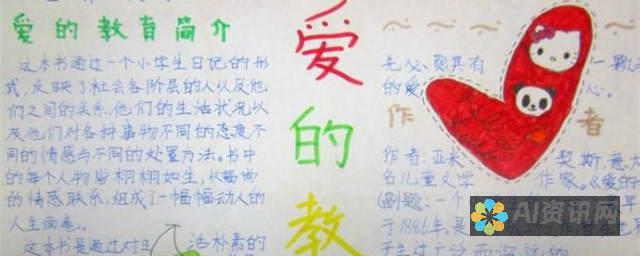 爱的教育简介
这本书通过一个小学生日记的形
式,反映了社会各阶层的人以及他
们之间的关系.他们的生活状况以
及他们对各种事物不同的态度不
同的情感与不同的处置方法。书中
的每个人物皆栩栩如生,以
的情感联系,组成了一幅幅动人的
人生画卷。
这本书是通过对 活朴素的
爱
的
教
具有 一颗
的爱 心。
作 者
作者:亚米 契斯,意
名儿童文学 作家。《爱的
(副题:一个 早
于1886年,是
产生过广泛而深远的
AI资讯网